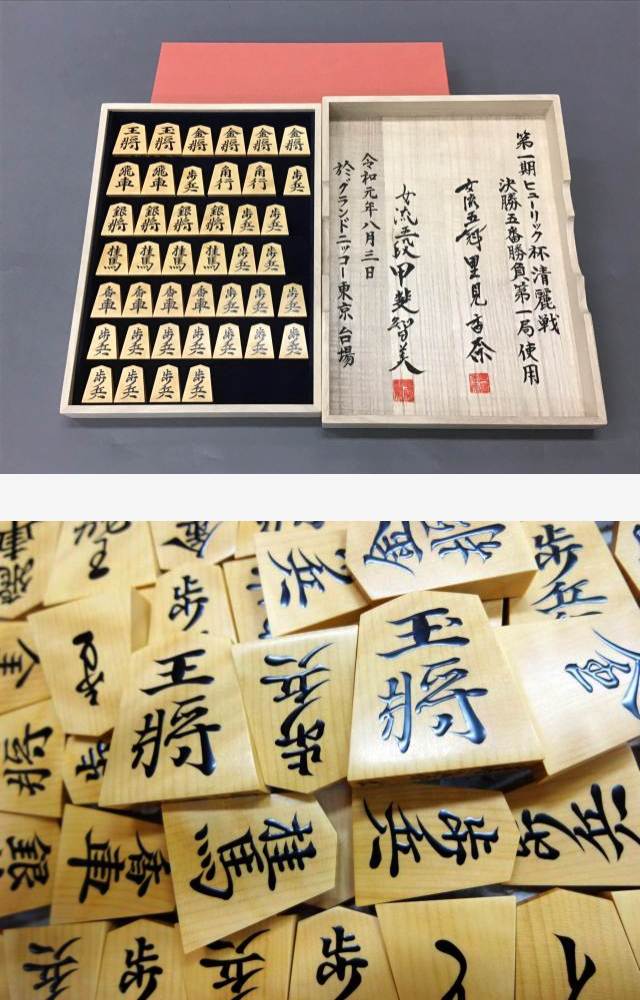 王將 王將 金將 金將 金將 金將
飛車 飛車 歩兵 角行 角行 歩兵
銀將 銀將 銀將 銀將 歩兵 歩兵
桂馬 桂馬 桂馬 桂馬 歩兵 歩兵
香車 香車 香車 香車 歩兵 歩兵 歩兵
歩兵 歩兵 歩兵 歩兵 歩兵 歩兵 歩兵
歩兵 歩兵 歩兵 歩兵
第一期ヒューリック杯清麗戦
決勝五番勝負第一局使用
女流五冠 里見香奈
女流五段 甲斐智美
令和元年八月三日
於グランドニッコー東京台場
歩兵
歩
王將
歩兵
王將
金
銀
香車
桂馬
歩兵
歩兵
歩
歩